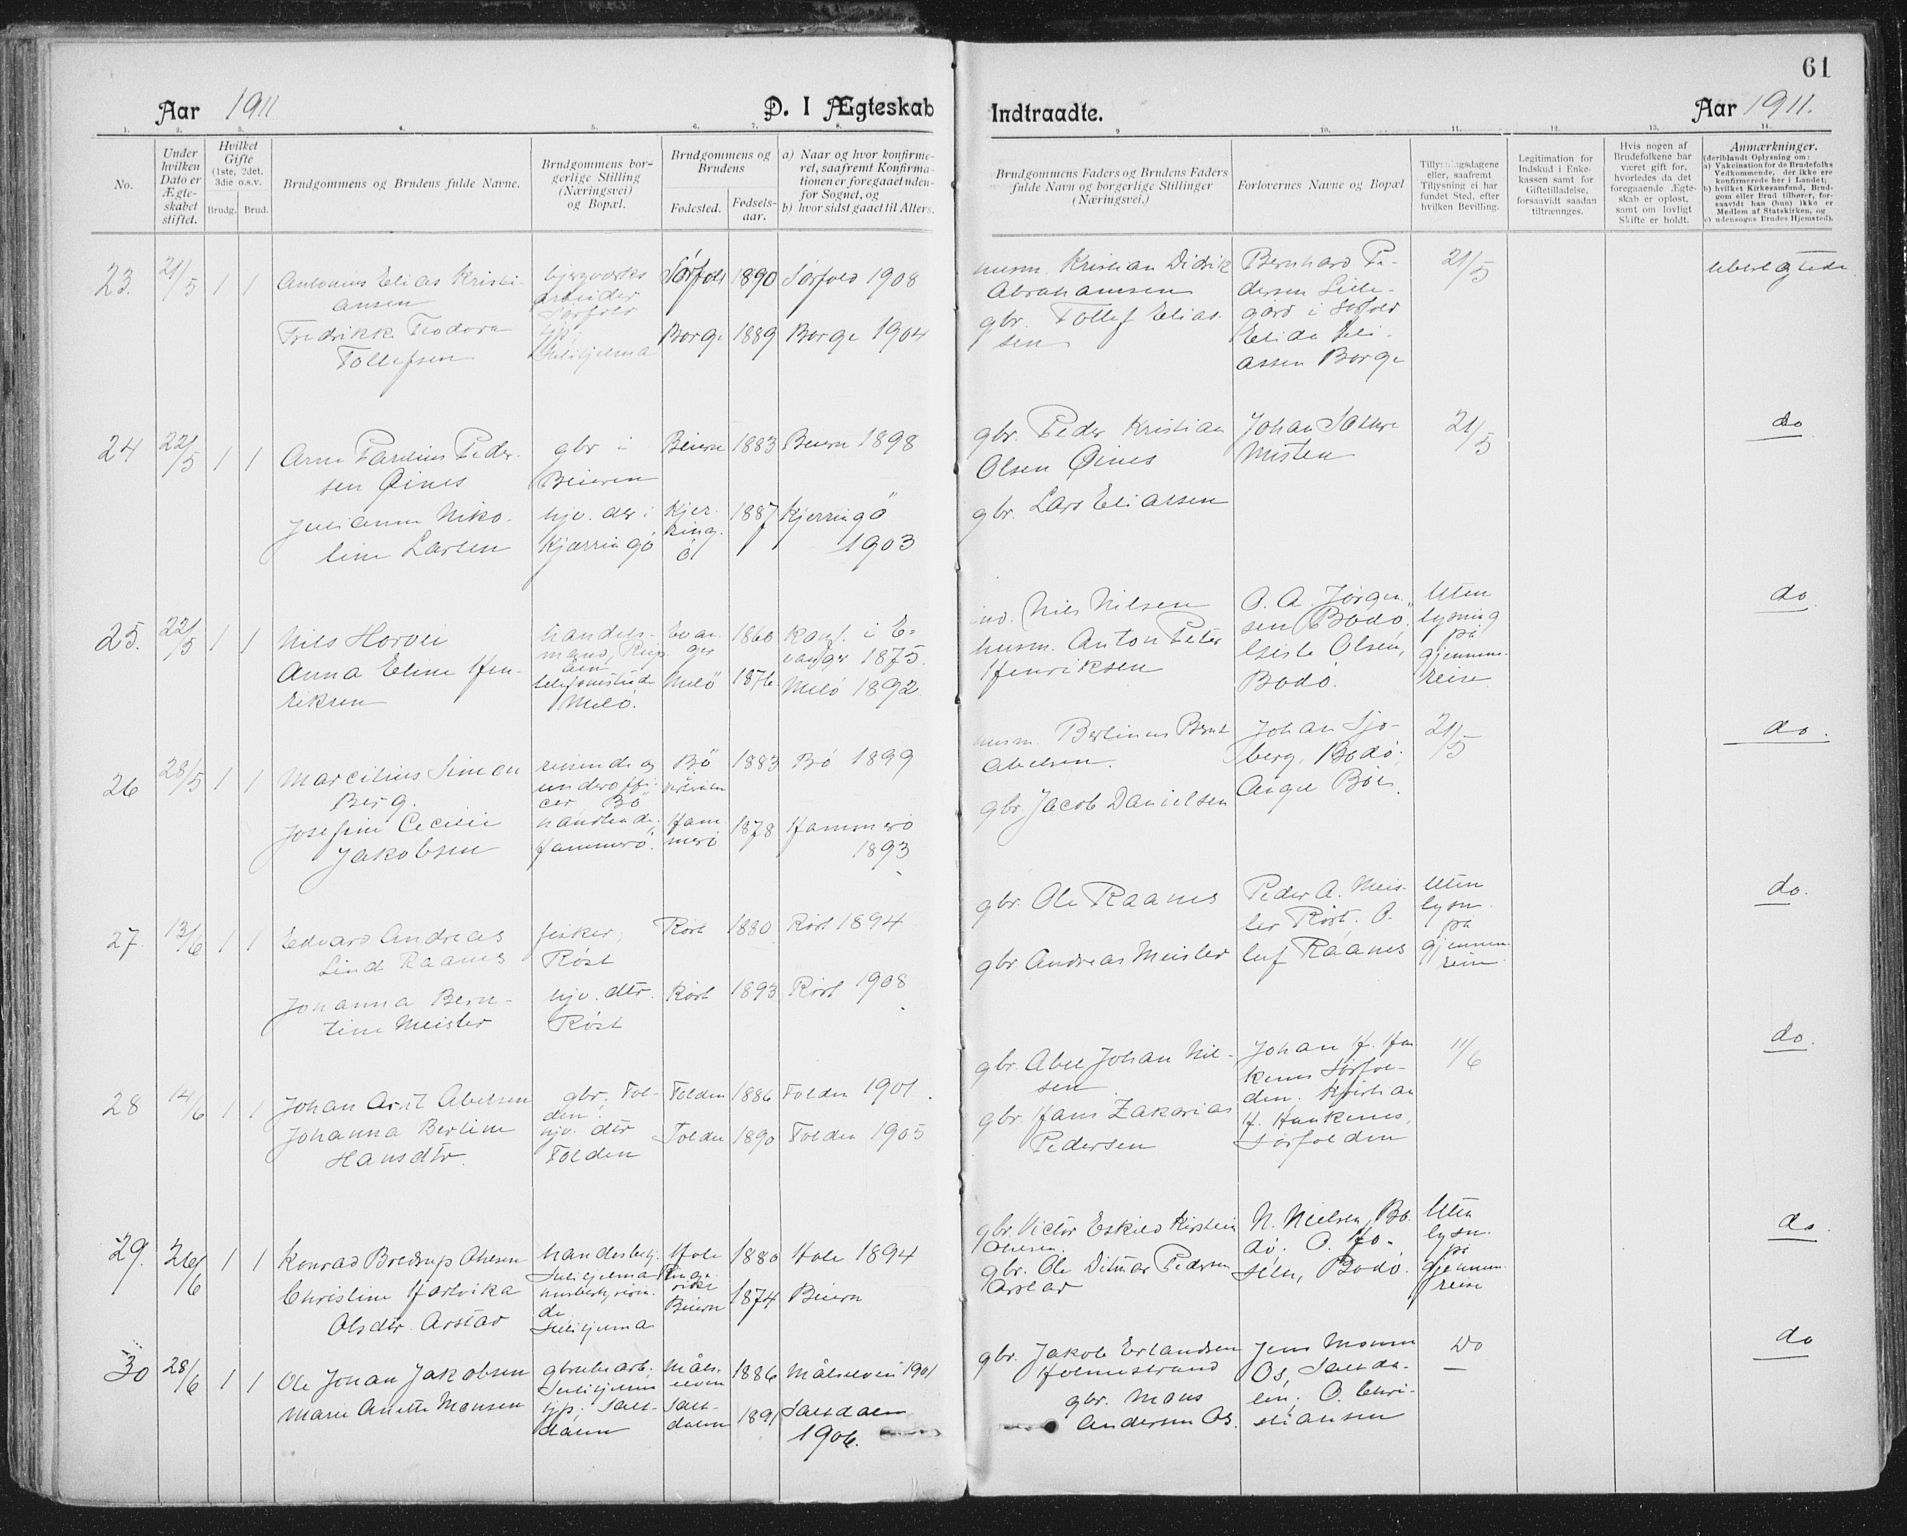 61
Aar 1911
D. I Ægteskab
Indtraadte.
Aar 1911.
1. 2. 3. 4. 5. 6. 7. 8. 9. 10. 11. 12. 13. 14.
No.
Under
hvilken
Dato er
Ægte-
skabet
stiftet.
Hvilket
Gifte
(1ste, 2det,
3die o.s.v.
Brudg. Brud.
Brudgommens og Brudens fulde Navne.
Brudgommens bor-
gerlige Stilling
(Næringsvei)
og Bopæl.
Brudgommens og
Brudens
Fødested.
Fødsels-
aar.
a) Naar og hvor konfirme-
ret, saafremt Konfirma-
tionen er foregaaet uden-
for Sognet, og
b) hvor sidst gaaet til Alters.
Brudgommens Faders og Brudens Faders
fulde Navn og borgerlige Stillinger
(Næringsvei.)
Forlovernes Navne og Bopæl
Tillysningsdagene
eller, saafremt
Tillysning ei har
fundet Sted, efter
hvilken Bevilling.
Legitimation for
Indskud i Enke-
kassen samt for
Giftetilladelse,
forsaavidt saadan
tiltrænges.
Hvis nogen af
Brudefolkene har
været gift før,
hvorledes da det
foregaaende Ægte-
skab er opløst,
samt om lovligt
Skifte er holdt.
Anmærkninger.
(deriblandt Oplysning om:
a) Vakcination for de Brudefolks
Vedkommende, der ikke ere
konfirmerede her i Landet;
b) hvilket Kirkesamfund, Brud-
gom eller Brud tilhører, for-
saavidt han (hun) ikke er
Medlem af Statskirken, og
c) udensogns Brudes Hjemsted).
23. 21/5 1 1
Antonius Elias Kristi-
ansen
Fredrikk Teodora
Tollefsen
bjergverks
arbeider
Sørfold
Sulitjelma
Sørfold 1890 Sørfold 1908
Borge 1889 Borge 1904
husm. Kristian Didrik
Abrahamsen
gbr. Tollef Elias-
sen
Bernhard Pe-
dersen Lille-
gård i Sørfold
Elida Eli-
assen Borge
21/5
ubeslegtede
24 22/5 1 1
Arne Parelius Peder-
sen Øines
Julianna Niko-
line Larsen
gbr i
Beieren
hjv. der i
Kjærringö
Beiern 1883 Beiern 1898
Kjer-
ring-
ö
1887 Kjerringö
1903
gbr. Peder Kristian
Olsen Øines
gbr. Lars Eliassen
Johan Sætere
Misten
21/5
do
25. 22/5 1 1
Nils Horvei
Anna Eline Hen-
riksen
handels-
mand,
telefonistinde
Melö.
Evan-
ger
1860 konf. i E-
vanger 1875.
Melö 1876 Melö 1892.
ind. Nils Nilsen
husm. Anton Peter
Henriksen
O. A. Jörgen-
sen, Bodö,
Gisle Olsen,
Bodö.
Uten
lysning
på
gjennem-
reise
do
26 28/5 1 1
Marcilius Simon
Berg.
Josefine Cecilie
Jakobsen
reisende og
underoffi-
cer Bö
handlende
Hammerö.
Bö
Vesterålen
1883 Bö 1899
Ham-
merö
1878 Hammerö
1893
husm. Berlinus Bernt
Abelsen.
gbr. Jacob Danielsen
Johan Sjö-
berg, Bodö;
Ange Böe.
21/5
do.
27. 13/6 1 1
Edvard Andreas
Lind Raanes
Johanna Bern-
tine Meisler
fisker,
Røst
hjv. dtr.
Röst
Röst 1880 Röst 1894
Röst 1893 Röst 1908
gbr. Ole Raanes
gbr. Andreas Meisler
Peder A. Meis-
ler Röst. O-
luf Raanes
Uten
lysn.
på
gjennem-
reise.
do.
28 14/6 1 1
Johan Arnt Abelsen
Johanna Berline
Hansdtr.
gbr. Fol-
den;
hjv. dtr
Folden
Folden 1886 Folden 1901.
Folden 1890 Folden 1905
gbr. Abel Johan Nil-
sen
gbr. Hans Zakarias
Pedersen
Johan H. Han-
kenes Sørfol-
den. Kristian
H. Hankenes,
Sørfolden
11/6
do.
29. 26/6 1 1
Konrad Bredrup Olsen
Christine Hartvika
Olsdtr. Arstad
handelsbetj.
Sulitjelma
husbestyrerin-
de,
Sulitjelma
Hole
Ringe-
rike
1880 Hole 1894
Beiern 1874 Beiern
gbr. Victor Eskild Kirstein
Olsen.
gbr. Ole Ditmar Pedersen
Arstad
N. Nielsen, Bo-
dö. O. Ho-
sen, Bodö.
Uten
lysn.
på
gjennem-
reise
do.
30 28/6 1 1
Ole Johan Jakobsen
Marie Anette Monsen
grubearb.
Sulitjelma
tjp. Salt-
dalen
Måls-
elven
1886 Målselven 1901
Salt-
dalen
1891 Saltdalen
1906.
gbr. Jakob Erlandsen
Holmestrand
gbr. Mons
Andersen Os.
Jens Monsen
Os, Saltda-
len; O. Chri-
stiansen
Do
do